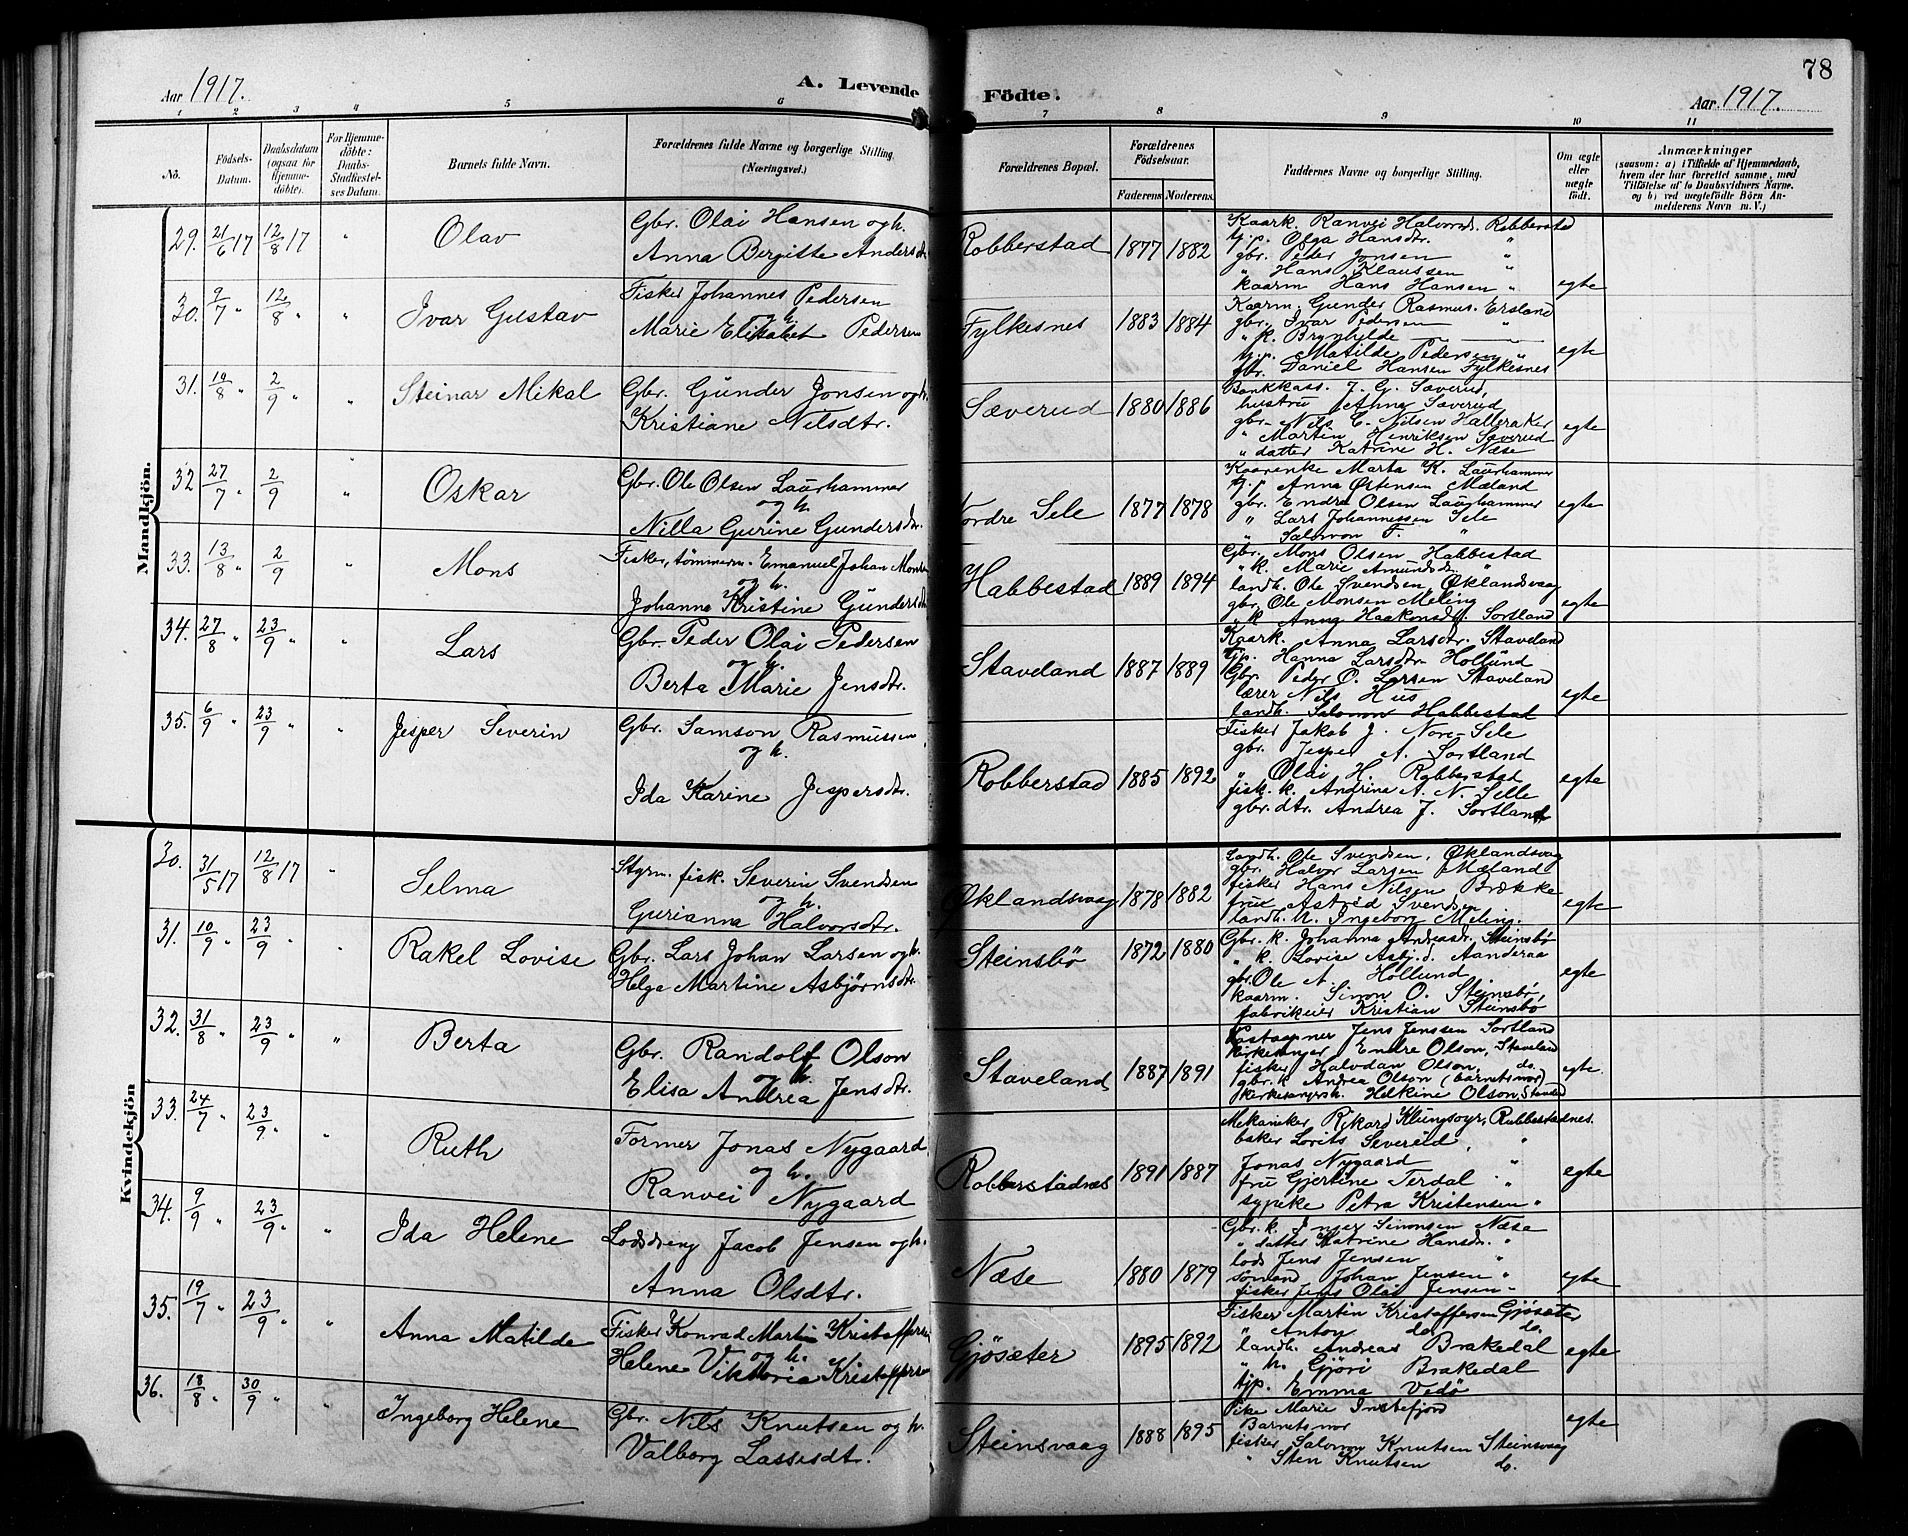 78
Aar 1917.
A. Levende Födte.
Aar 1917.
1 2 3 4 5 6 7 8 9 10 11
No.
Födsels-Datum.
Daabsdatum (ogsaa for Hjemmedöbte).
For Hjemmedöbte: Daabs-Stadfæstelses Datum.
Barnets fulde Navn.
Forældrenes fulde Navne og borgerlige Stilling. (Næringsvei.)
Forældrenes Bopæl.
Forældrenes Födselsaar.
Faderens. Moderens.
Faddernes Navne og borgerlige Stilling.
Om ægte eller uægte födt.
Anmærkninger
(saasom: a) i Tilfælde af Hjemmedaab, hvem der har forrettet samme, med Tilföielse af to Daabsvidners Navne. og b) ved uægtefödte Börn Anmelderens Navn m. V.)
Mandkjön.
29. 21/6 17 12/8 17 " Olav
Gbr. Olai Hansen og h.
Anna Bergitte Andersdtr.
Robberstad 1877 1882
Kaark. Ranvei Halvorsd. Robberstad
tj.p. Olga Hansdtr. "
gbr. Peder Jonsen "
" Hans Klaussen "
kaarm Hans Hansen "
egte
30. 9/7 " 12/8 " " Ivar Gustav
Fisker Johannes Pedersen
og h.
Marie Elisabet Pedersen
Fylkesnes 1883 1884
Kaarm. Gunder Rasmus. Ersland
gbr. Ivar Pedersen "
" k. Brynhilde
tj.p. Matilde Pedersen "
gbr. Daniel Hansen Fylkesnes
egte
31. 19/8 " 2/9 " " Steinar Mikal
Gbr. Gunder Jonsen og h.
Kristiane Nilsdtr.
Sæverud 1880 1886
Bankkass. J. G. Sæverud,
hustru Anna Sæverud
gbr. Nils C. Nilsen Halleraker
" Martin Henriksen Sæverud
" datter Katrine H. Næse
egte
32 27/7 " 2/9 " Oskar
Gbr. Ole Olsen Laurhammer
og h.
Nilla Gurine Gundersdtr.
Nordre Sele 1877 1878
Kaarenke Marta K. Laurhammer
tj.p Anna Østensen Mæland
gbr. Endre Olsen Laurhammer
" Lars Johannessen Sele
" Salomon T. "
egte
33. 13/8 " 2/9 " Mons
Fisker, tømmerm. Emanuel Johan Monsen
og h.
Johanna Kristine Gundersdtr.
Habbestad 1889 1894
Gbr. Mons Olsen Habbestad
" k. Marie Amundsdr. "
landh. Ole Svendsen, Øklandsvaag
gbr. Ole Monsen Meling
" k Anna Haakonsdtr. Sortland
egte
34. 27/8 " 23/9 " " Lars
Gbr. Peder Olai Pedersen
og h.
Berta Marie Jensdtr.
Staveland 1887 1889
Kaark. Anna Larsdtr. Staveland
Tjp. Hanna Larsdtr. Hollund
Gbr. Peder O. Larsen Staveland
lærer Nils Hus
landh. Salomon Habbestad
egte
35. 6/9 " 23/9 " " Jesper Severin
Gbr. Samson Rasmussen
og h.
Ida Karine Jespersdtr.
Robberstad 1885 1892
Fisker Jakob J. Nore-Sele
gbr. Jesper A. Sortland
" Olai H. Robberstad
fisk. k. Andrine A. N. Selle
gbr. dtr. Andrea J. Sortland
egte
Kvindekjön
30. 31/5 17 12/8 17 " Selma
Styrm. fisk. Severin Svendsen
og h.
Gurianna Halvorsdtr.
Øklandsvaag 1878 1882
Landh. Ole Svendsen, Øklandsvaag
gbr. Halvor Larsen Mæland
fisker Hans Nilsen Brække
frux Astrid Svendsen
landh. h. Ingeborg Meling.
egte
31. 10/9 " 23/9 " " Rakel Lovise
Gbr. Lars Johan Larsen og h.
Helga Martine Asbjørnsdtr.
Steinsbö 1872 1880
Gbr. k. Johanna Andreasdr. Steinsbø
" k. Lovise Asbj.d. Aanderaa
gbr. Ole A. Hollund
kaarm. Simon O. Steinsbø,
fabrikeier Kristian Steinsbø
egte
32. 31/8 " 23/9 " " Berta
Gbr. Randolf Olson
og h.
Elisa Andrea Jensdtr.
Staveland 1887 1891
Jens Jenssen Sortland
Kirkesanger Endre Olson, Staveland
fisker Halvdan Olson, do.
gbr. k Andrea Olson (barnets mor)
kirkesangersk. Helkine Olson, Staveland
egte.
33. 24/7 " 23/9 " " Ruth
Former Jonas Nygaard
og h.
Ranvei Nygaard
Robberstadnes 1891 1887
Mekaniker Rikard Klungsoyr, Rubbestadnes.
baker Lorits Severeid, "
Jonas Nygaard "
fru Gjertine Terdal "
sypike Petra Kristensen "
egte
34. 9/9 " 23/9 " " Ida Helene
Losdreng Jacob Jensen og h.
Anna Olsdtr.
Næse 1880 1879
Gbr. k. Inger Simonsen Næse
" datter Katrine Hansdr. "
lods Jens Jensen "
sømand Johan Jensen "
fisker Jens Olai Jensen "
egte
35. 19/7 " 23/9 " " Anna Matilde
Fisker Konrad Martin Kristoffersen
og h.
Helene Viktoria Kristoffersen
Gjøsæter 1895 1892
Fisker Martin Kristoffersen Gjøsæter
" Anton do do.
landh. Andreas Brakedal
" h. Gjøri Brakedal
tjp. Emma Vedø
egte
36. 18/8 " 30/9 " " Ingeborg Helene
Gbr. Nils Knutsen og h.
Valborg Lassesdtr.
Steinsvaag 1888 1895
Pike Marie Innstefjord
Barnets mor
fisker Salomon Knutsen Steinsvaag
" Sten Knutsen do.
egte